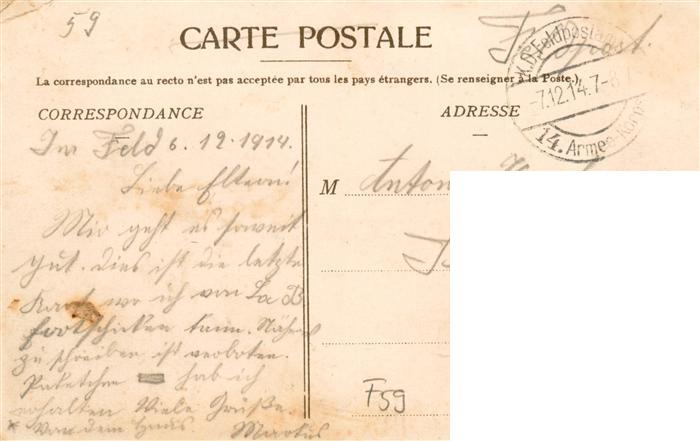 59
CARTE POSTALE
Feldpost.
La correspondance au recto n'est pas acceptée par tous les pays étrangers. (Se renseigner à la Poste.)
K.D. Feldpost
-7.12.14.7-8
14. Armee-Korps
CORRESPONDANCE
ADRESSE
Im Feld 6.12.1914.
Liebe Eltern!
Mir geht es soweit
gut. Dies ist die letzte
Kart wo ich von La B
fortschicken kann. Näheres
zu schreiben ist verboten.
Paketchen hab ich
erhalten Viele Grüße.
* Von dem Haus Markus
M Anton
F59